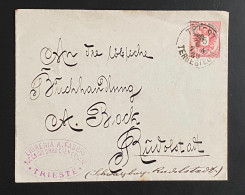 An die löbliche
Buchhandlung
A. Bock
Rudolstadt
(Schwarzburg-Rudolstadt)
TRIEST
TERGESTEO
LIBRERIA
TRIESTE